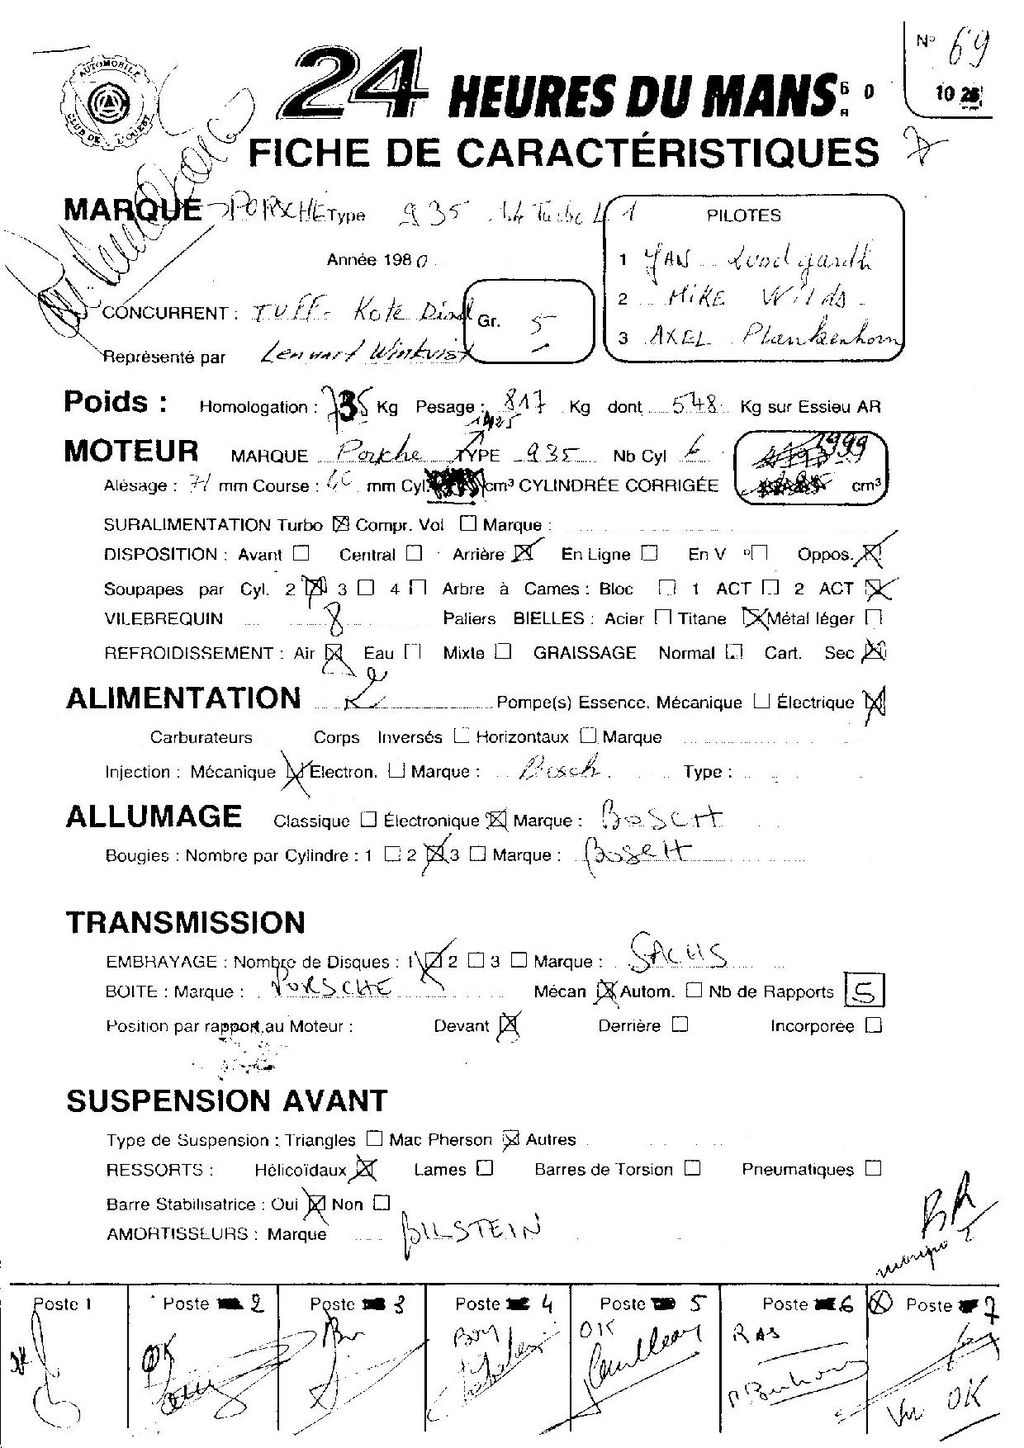 N° 69
AUTOMOBILE CLUB DE L'OUEST
24 HEURES DU MANS
10 25
FICHE DE CARACTÉRISTIQUES
MARQUE PORSCHE Type 935 1.4 Turbo L 1
PILOTES
Année 1980
1 JAN Lundgardh
2 MIKE Wilds
3 AXEL Plankenhorn
CONCURRENT : TUFF- Kote Dinol
Gr. 5
Représenté par Lennart Winkvist
Poids : Homologation : 735 Kg Pesage : 817 Kg dont 548 Kg sur Essieu AR
1425
MOTEUR MARQUE Porche TYPE 935 Nb Cyl 6
1999
Alésage : 71 mm Course : 60 mm Cyl. cm³ CYLINDRÉE CORRIGÉE cm³
SURALIMENTATION Turbo Compr. Vol Marque :
DISPOSITION : Avant Central Arrière En Ligne En V Oppos.
Soupapes par Cyl. 2 3 4 Arbre à Cames : Bloc 1 ACT 2 ACT
VILEBREQUIN 8 Paliers BIELLES : Acier Titane Métal léger
REFROIDISSEMENT : Air Eau Mixte GRAISSAGE Normal Cart. Sec
ALIMENTATION 2 Pompe(s) Essence. Mécanique Électrique
Carburateurs Corps Inversés Horizontaux Marque
Injection : Mécanique Electron. Marque : Bosch Type :
ALLUMAGE Classique Électronique Marque : BOSCH
Bougies : Nombre par Cylindre : 1 2 3 Marque : BOSCH
TRANSMISSION
EMBRAYAGE : Nombre de Disques : 1 2 3 Marque : SACHS
BOITE : Marque : PORSCHE Mécan Autom. Nb de Rapports 5
Position par rapport au Moteur : Devant Derrière Incorporée
SUSPENSION AVANT
Type de Suspension : Triangles Mac Pherson Autres
RESSORTS : Hélicoïdaux Lames Barres de Torsion Pneumatiques
Barre Stabilisatrice : Oui Non
AMORTISSEURS : Marque BILSTEIN
Poste 1 Poste 2 Poste 3 Poste 4 Poste 5 Poste 6 Poste 7
OK OK RAS
Vu OK